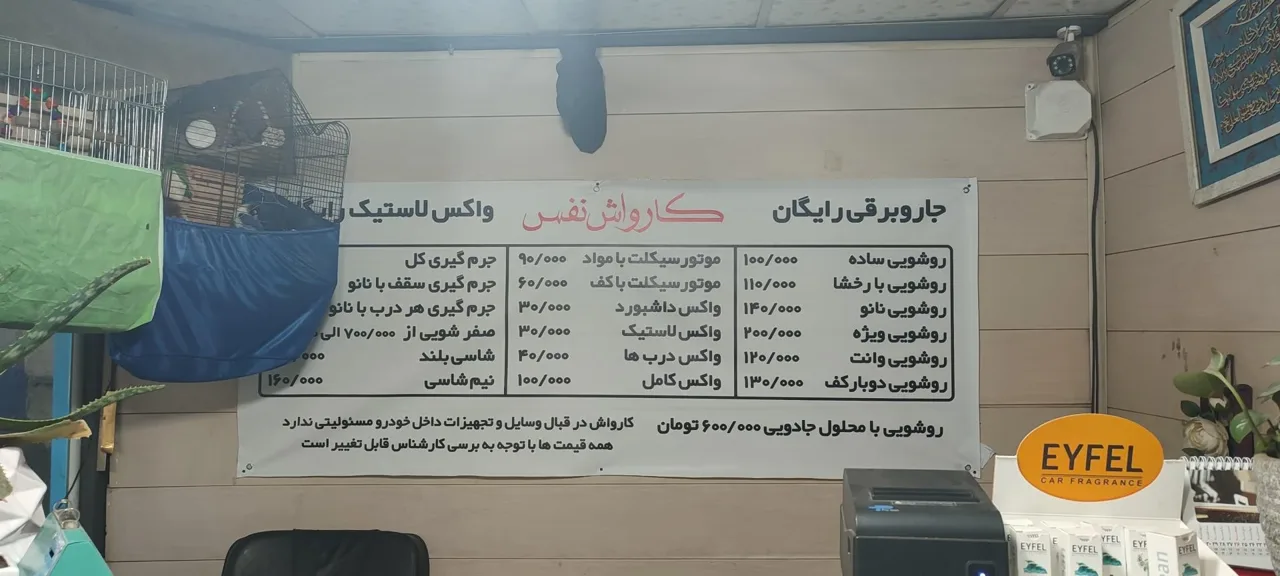 جاروبرقی رایگان
کارواش نفس
واکس لاستیک
روشویی ساده ۱۰۰/۰۰۰
روشویی با رخشا ۱۱۰/۰۰۰
روشویی نانو ۱۴۰/۰۰۰
روشویی ویژه ۲۰۰/۰۰۰
روشویی وانت ۱۲۰/۰۰۰
روشویی دوبار کف ۱۳۰/۰۰۰
موتور سیکلت با مواد ۹۰/۰۰۰
موتور سیکلت با کف ۶۰/۰۰۰
واکس داشبورد ۳۰/۰۰۰
واکس لاستیک ۳۰/۰۰۰
واکس درب ها ۴۰/۰۰۰
واکس کامل ۱۰۰/۰۰۰
جرم گیری کل
جرم گیری سقف با نانو
جرم گیری هر درب با نانو
صفر شویی از ۷۰۰/۰۰۰ الی
شاسی بلند
نیم شاسی ۱۶۰/۰۰۰
روشویی با محلول جادویی ۶۰۰/۰۰۰ تومان
کارواش در قبال وسایل و تجهیزات داخل خودرو مسئولیتی ندارد
همه قیمت ها با توجه به برسی کارشناس قابل تغییر است
EYFEL
CAR FRAGRANCE
EYFEL
EYFEL
EYFEL